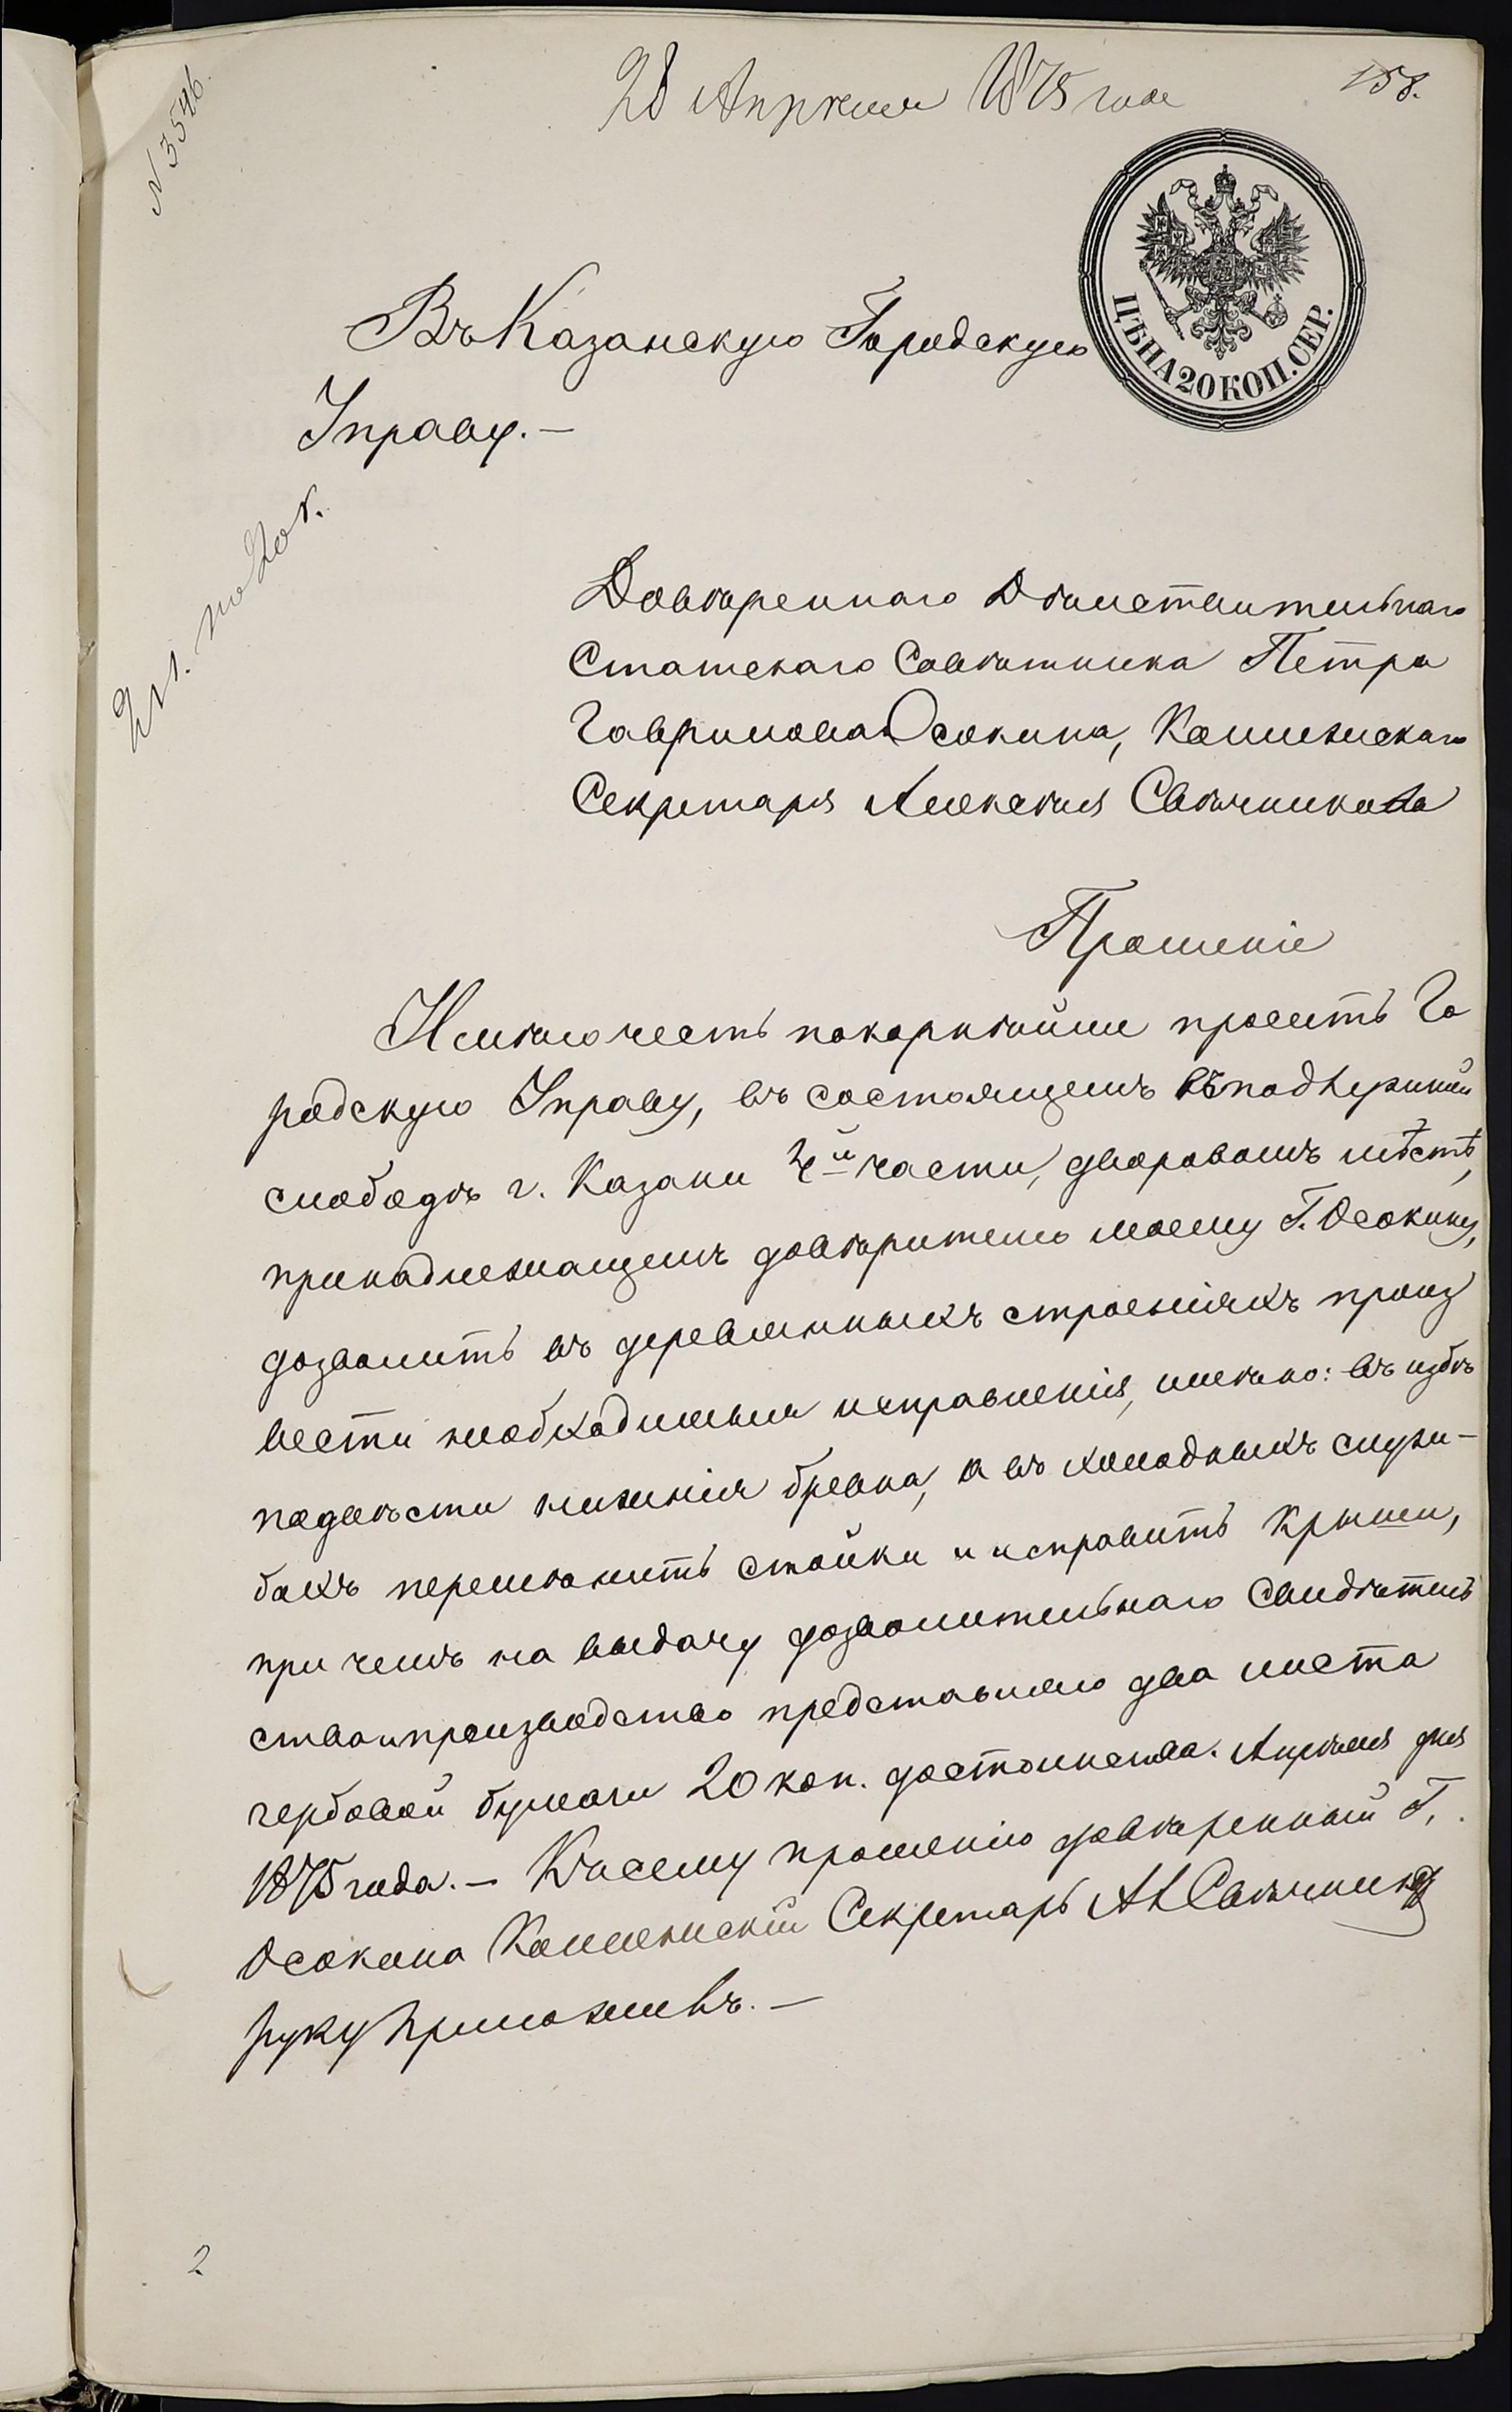 28 Апрѣля 1875 года
158.
N 3546.
ЦѢНА 20 КОП. СЕР.
Въ Казанскую Городскую
Управу. —
2 л. по 20 к.
Довѣреннаго Дѣйствительнаго
Статскаго Совѣтника Петра
Гаврилова Осокина, Коллежскаго
Секретаря Алексѣя Свѣчникова
Прошеніе
Имѣю честь покорнѣйше просить Го
родскую Управу, въ состоящемъ въ подлужной
слободѣ г. Казани 4й части, дворовомъ мѣстѣ,
принадлежащемъ довѣрителю моему Г. Осокину,
дозволить въ деревянныхъ строеніяхъ произ
вести необходимыя исправленія, именно: въ избѣ
подвести нижнія бревна, а въ холодныхъ служ-
бахъ перемѣнить стойки и исправить крыши,
при чемъ на выдачу дозволительнаго Свидѣтель
ства и производство представляю два листа
гербовой бумаги 20 коп. достоинства. Апрѣля дня
1875 года. — Къ сему прошенію довѣренный Г.
Осокина Коллежскій Секретарь Ал Свѣчниковъ
руку приложилъ. —
2